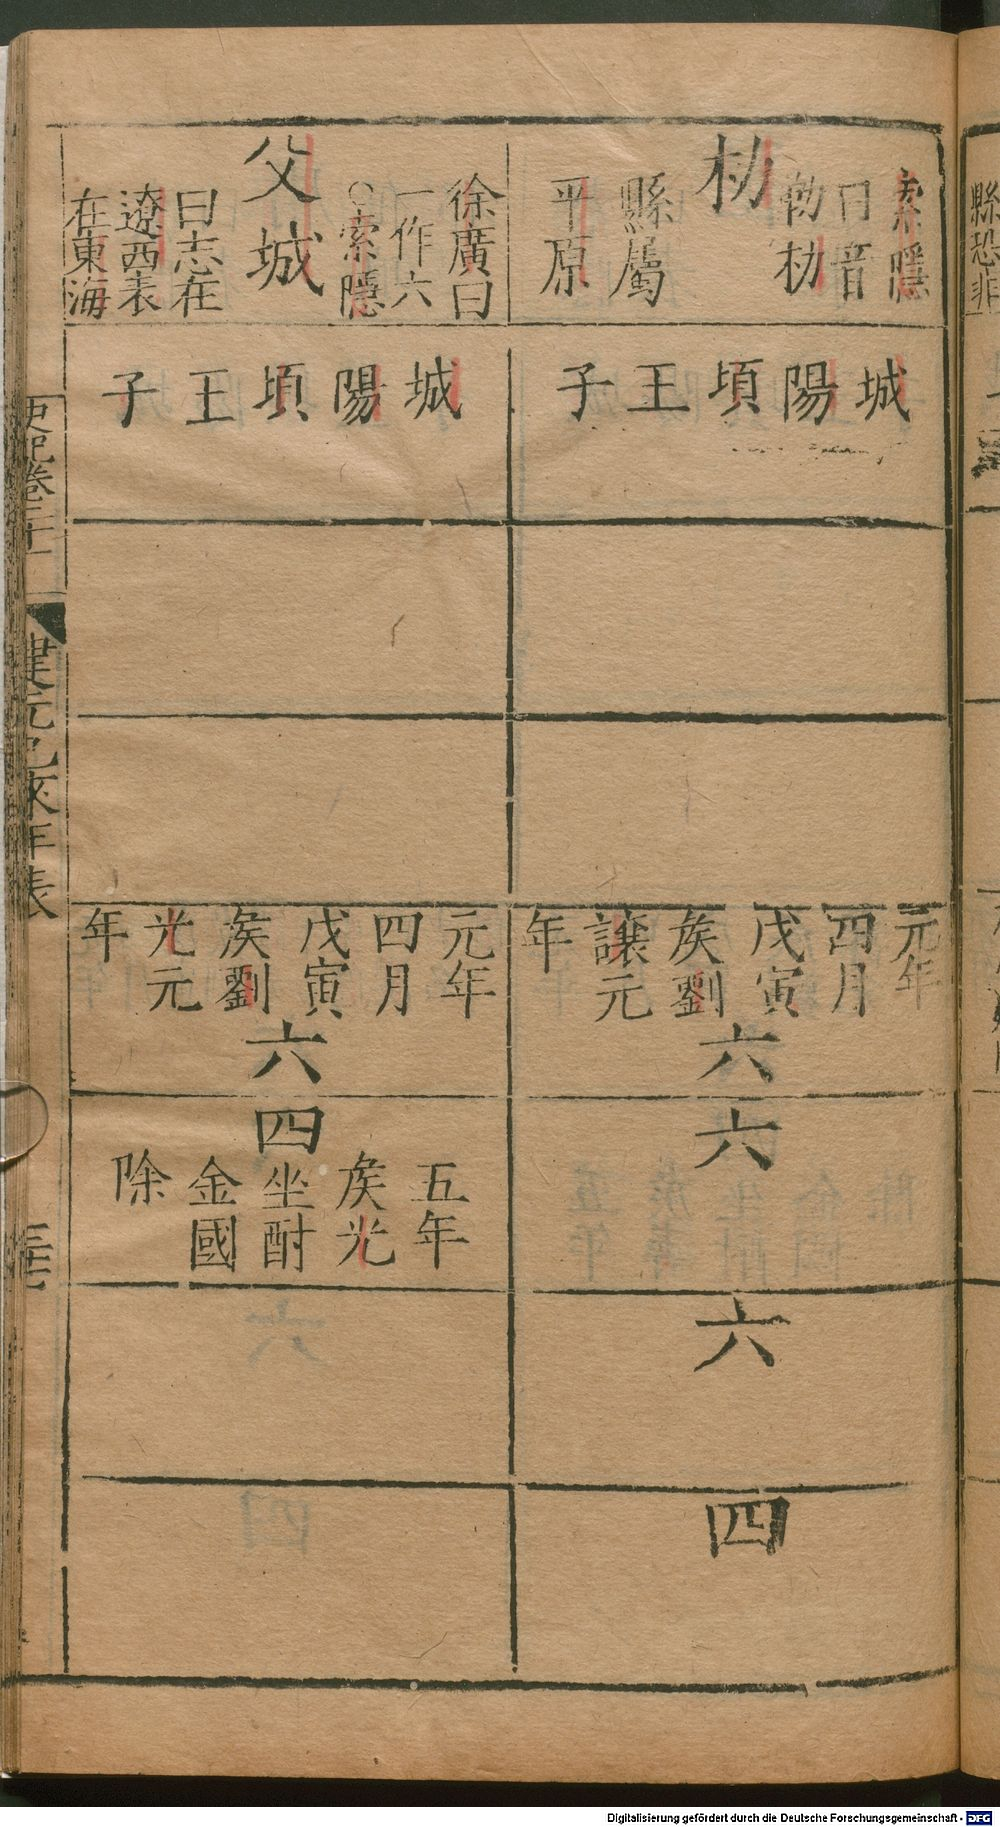 索隱
曰音
勃朸
朸
縣屬
平原
城陽頃王子
元年
四月
戊寅
矦劉
讓元
年
六
六
六
四
徐廣曰
一作六
○索隱
父城
曰志在
遼西表
在東海
城陽頃王子
元年
四月
戊寅
矦劉
光元
年
六
四
五年
矦光
坐酎
金國
除
史記卷二十一
年表
縣恐非
Digitalisierung gefördert durch die Deutsche Forschungsgemeinschaft - DFG